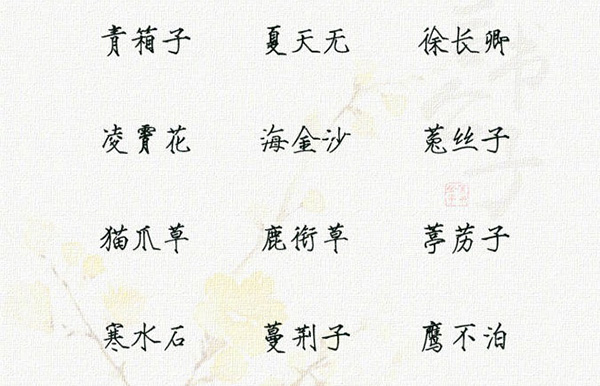 青箱子 夏天无 徐长卿
凌霄花 海金沙 菟丝子
猫爪草 鹿衔草 葶苈子
寒水石 蔓荆子 鹰不泊